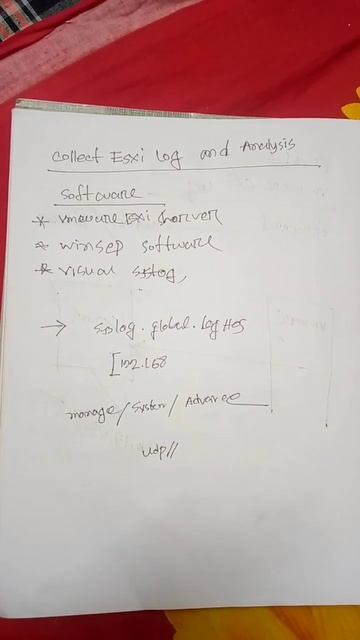 Collect Esxi Log and Analysis
Software
* vmware Esxi Server
* winscp software
* visual syslog,
→ syslog.global.logHos
[192.168
manage/System/Advance
udp//